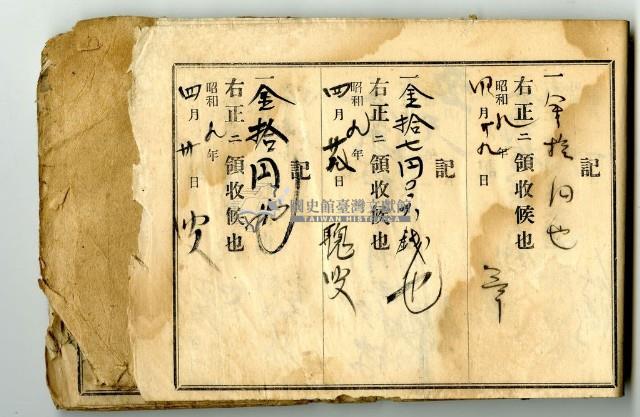 記
一金拾円也
右正ニ領收候也
昭和九年
四月十九日
記
一金拾七円
銭也
右正ニ領收候也
昭和九年
四月
日
記
一金拾円也
右正ニ領收候也
昭和九年
四月廿日
國史館臺灣文獻館
TAIWAN HISTORICA